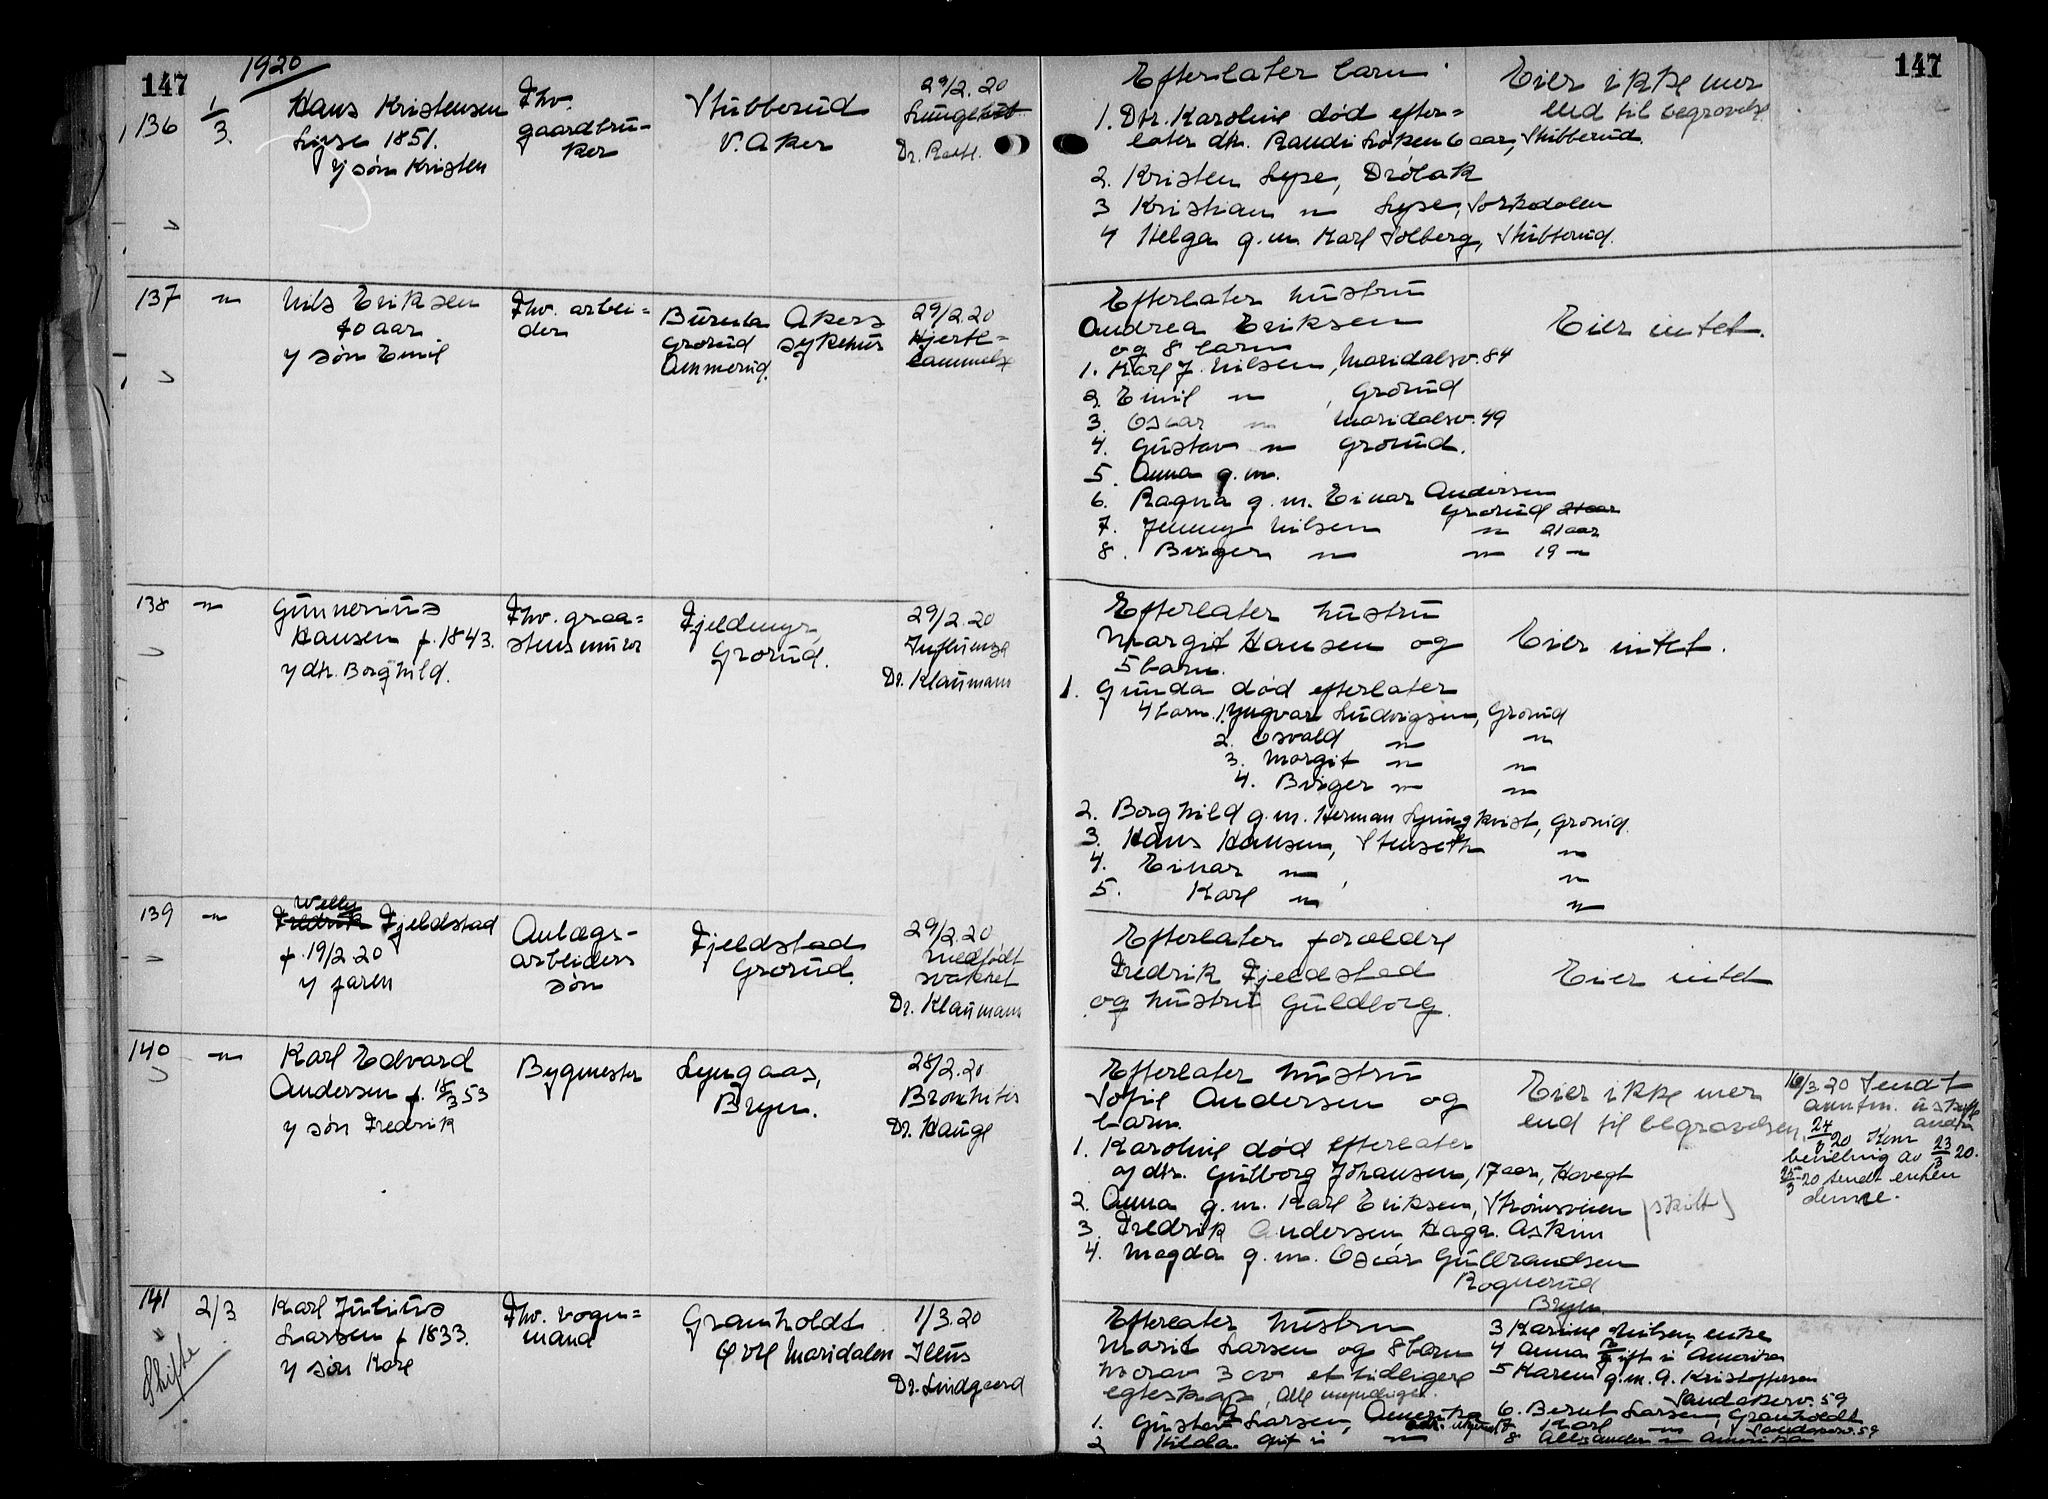 147
1920
136
1/3.
Hans Kristensen
Lyse 1851.
v/ søn Kristen
Fhv.
gaardbru-
ker
Stubberud
V. Aker
29/2. 20
Dr.
137
"
Nils Eriksen
70 aar
v/ søn Emil
Fhv. arbei-
der
Grorud
Ammerud.
Akers
sykehus
29/2. 20
Hjerte-
lammelse
138
"
Gunnerius
Hansen f. 1843.
v/ dtr. Borghild.
Fhv. graa-
stensmurer
Fjeldmyr,
Grorud.
29/2. 20
Influensa
Dr. Klaumann
139
"
Willy
Fredrik Fjeldstad
f. 19/2. 20
v/ faren
Anlægs-
arbeiders
søn
Fjeldstad
Grorud.
29/2. 20
Medfødt
svakhet
Dr. Klaumann
140
"
Karl Edvard
Andersen f. 18/3 53
v/ søn Fredrik
Bygmester
Lyngaas,
Bryn.
28/2. 20
Bronkitis
Dr. Hauge
141
Skifte
2/3
Karl Julius
Larsen f 1833.
v/ søn Karl
Fhv. vogn-
mand
Gramholdt
Øvre Maridalen
1/3. 20
Ileus
Dr. Lindgaard
147
Efterlater barn
1. Dtr. Karoline død efter-
later dtr. Randi Løken 6 aar, Stubberud.
2. Kristen Lyse, Drøbak
3 Kristian " Lyse, Sørkedalen
4 Helga g. m. Karl Solberg, Stubberud.
Eier ikke mer
end til begravelse.
Efterlater hustru
Andrea Eriksen
og 8 barn
1. Karl J. Nilsen, Maridalsv. 84
2. Emil " , Grorud
3. Oscar " Maridalsv. 49
4. Gustav " Grorud.
5. Anna g. m.
6. Ragna g. m. Einar Andersen
Grorud 21 aar
7. Jenny Nilsen " 21 aar
8. Birger " " 19 "
Eier intet.
Efterlater hustru
Margit Hansen og
5 barn.
1. Gunda død efterlater
4 barn 1. Yngvar Ludvigsen, Grorud
2. Osvald " "
3. Margit " "
4. Birger " "
2. Borghild g. m. Herman Ljungkvist, Grorud.
3. Hans Hansen, Stenseth "
4. Einar " , "
5. Karl " "
Eier intet.
Efterlater forældre
Fredrik Fjeldstad
og hustru Guldborg.
Eier intet
Efterlater hustru
Sofie Andersen og
barn.
1. Karoline død efterlater
v/ dtr. Gulborg Johansen, 17 aar, Kavegt
2. Anna g. m. Karl Eriksen, Strømsveien (skilt)
3 Fredrik Andersen Haga. Askim
4. Magda g. m. Oscar Gulbrandsen
Rognerud
Bryn
Eier ikke mer
end til begravelsen.
16/3. 20 Sendt
anm. uskifte
24/3 20 Kom
bevilling av 23/3 20.
25/3 20 sendt enken
denne.
Efterlater hustru
Marit Larsen og 8 barn
hvorav 3 av et tidligere
egteskap, Alle myndige.
1. Gustav Larsen, Amerika
2 Hilda gift i "
3 Karine Nilsen, enke
4 Anna gift i Amerika
5 Karen g. m. A. Kristoffersen
Sandakerv. 59
6. Bernt Larsen, Gramholdt
7 Karl " Sandakerv. 59
8 Alexander " Amerika